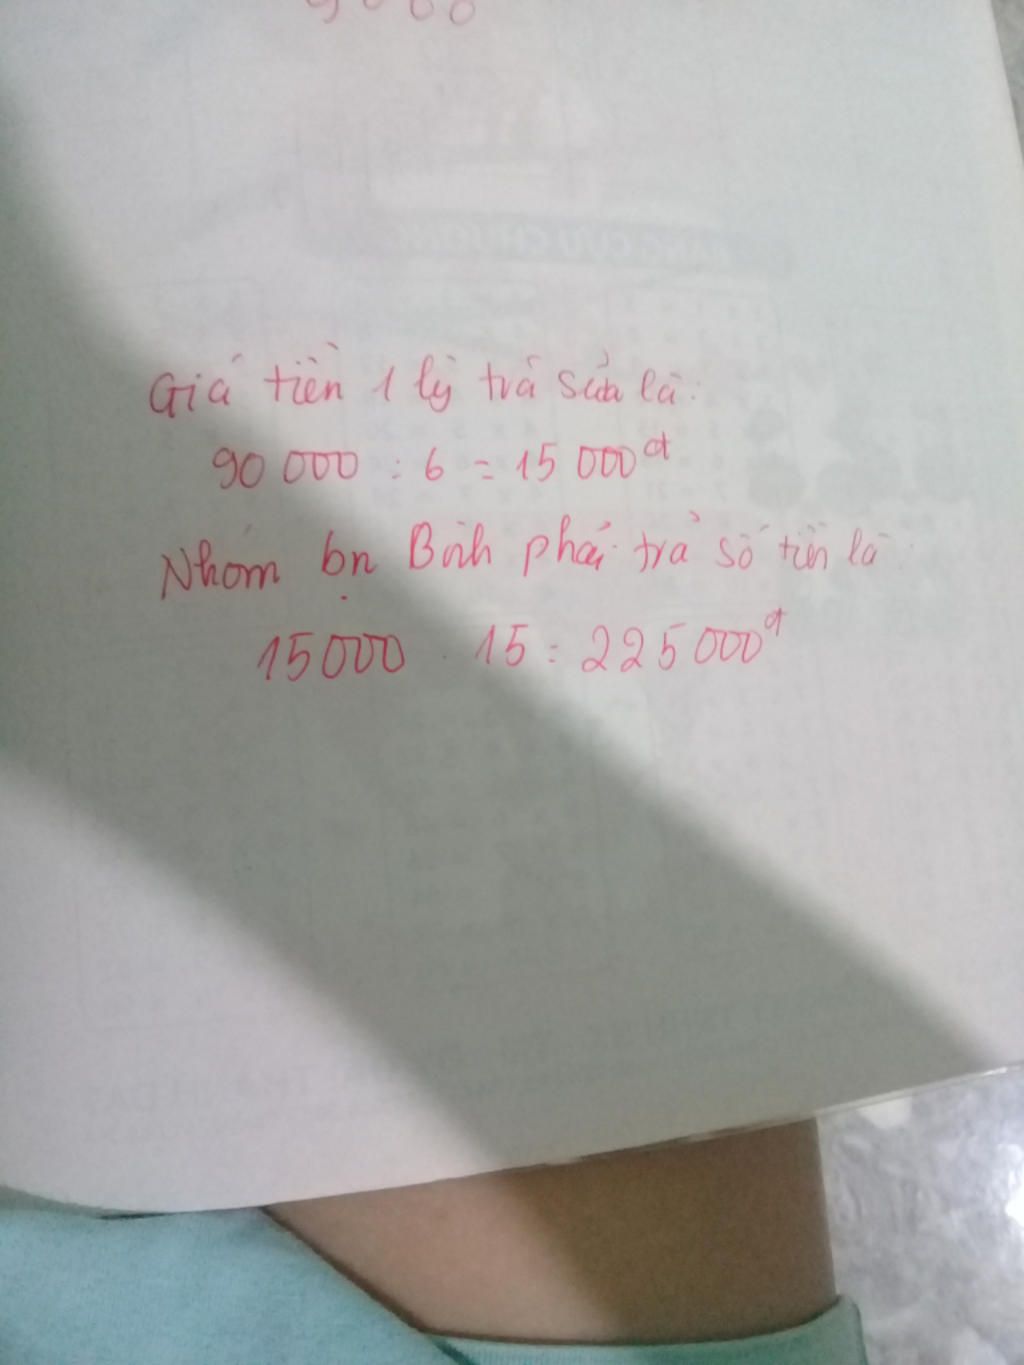 Giá tiền 1 ly trà sữa là:
90 000 : 6 = 15 000đ
Nhóm bạn Bình phải trả số tiền là:
15000 . 15 = 225 000đ